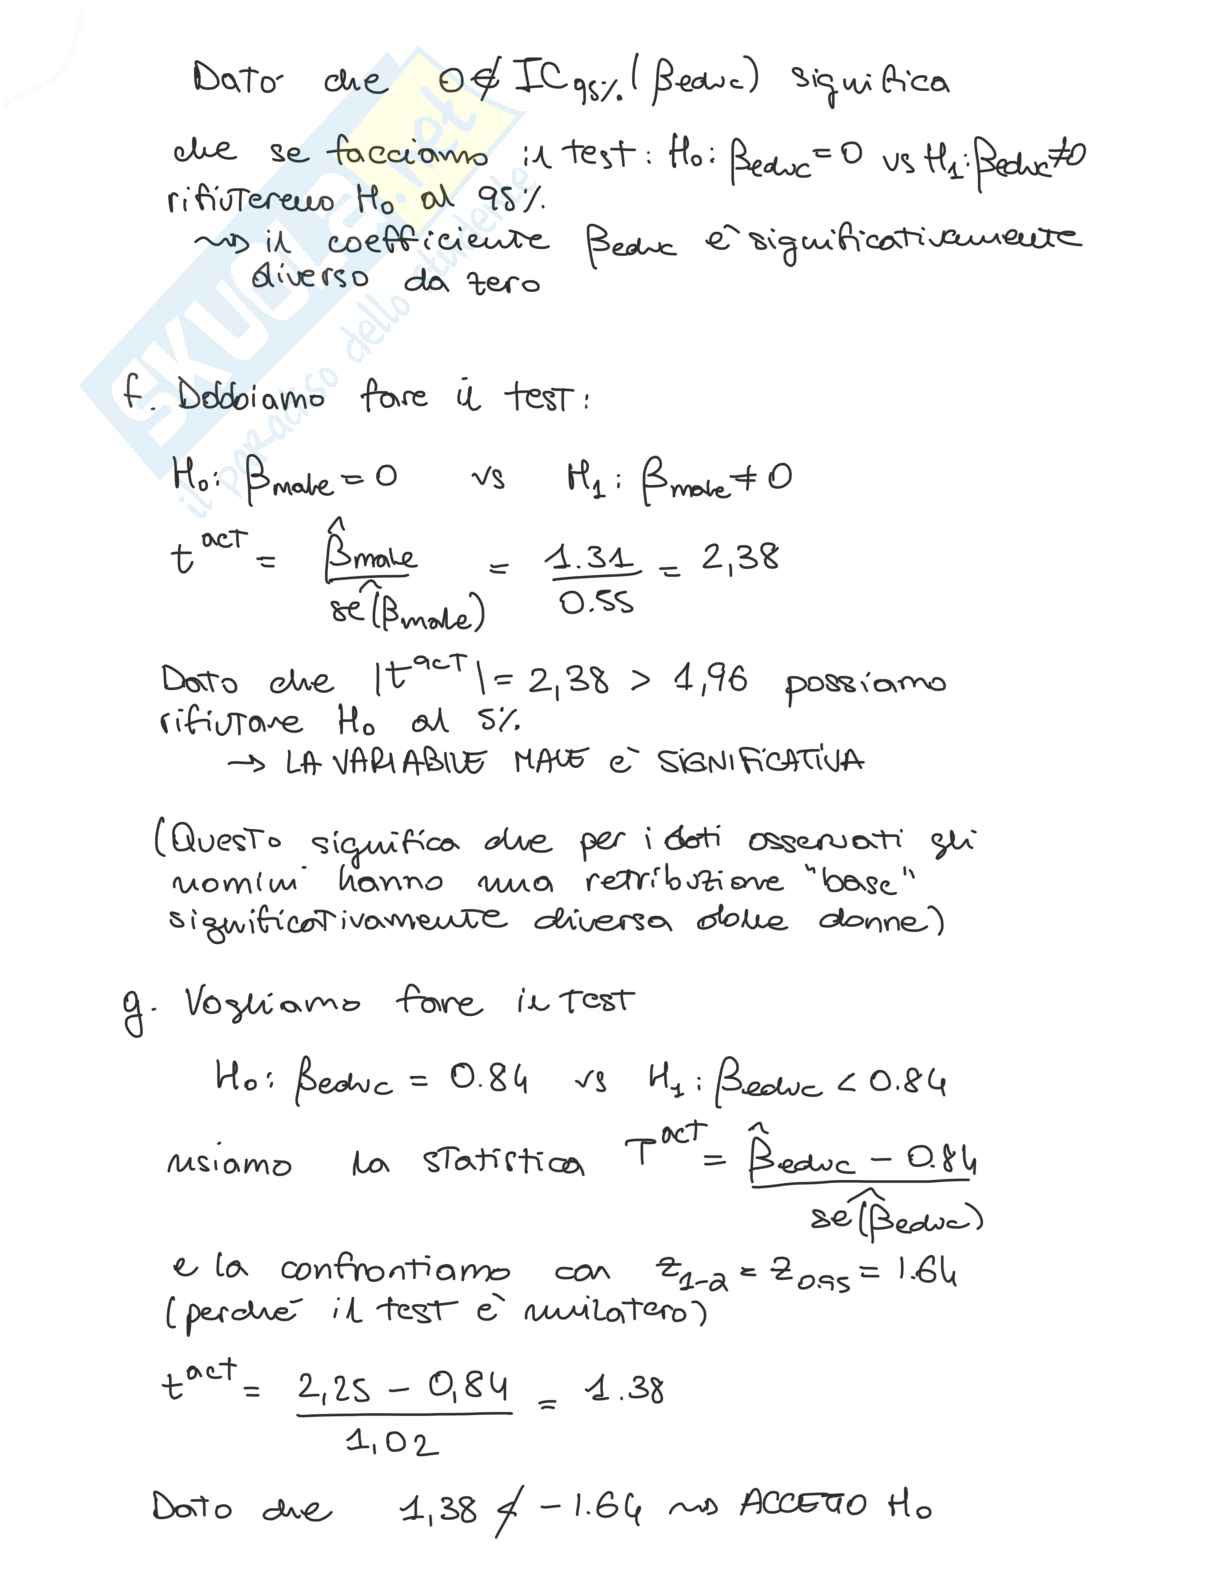 Dato che 0 ∉ IC95% (βeduc) significa
che se facciamo il test: H0: βeduc = 0 vs H1: βeduc ≠ 0
rifiuteremo H0 al 95%.
⇝ il coefficiente βeduc è significativamente
diverso da zero
f. Dobbiamo fare il test:
H0: βmale = 0 vs H1: βmale ≠ 0
t^act = β̂male / sê(βmale) = 1.31 / 0.55 = 2,38
Dato che |t^act| = 2,38 > 1,96 possiamo
rifiutare H0 al 5%.
→ LA VARIABILE MALE è SIGNIFICATIVA
(Questo significa che per i dati osservati gli
uomini hanno una retribuzione "base"
significativamente diversa dalle donne)
g. Vogliamo fare il test
H0: βeduc = 0.84 vs H1: βeduc < 0.84
usiamo la statistica T^act = β̂educ − 0.84 / sê(βeduc)
e la confrontiamo con z1-α = z0.95 = 1.64
(perché il test è unilatero)
t^act = 2,25 − 0,84 / 1,02 = 1.38
Dato che 1,38 ≮ −1.64 ⇝ ACCETTO H0
SKUOLA.net
il paradiso dello studente